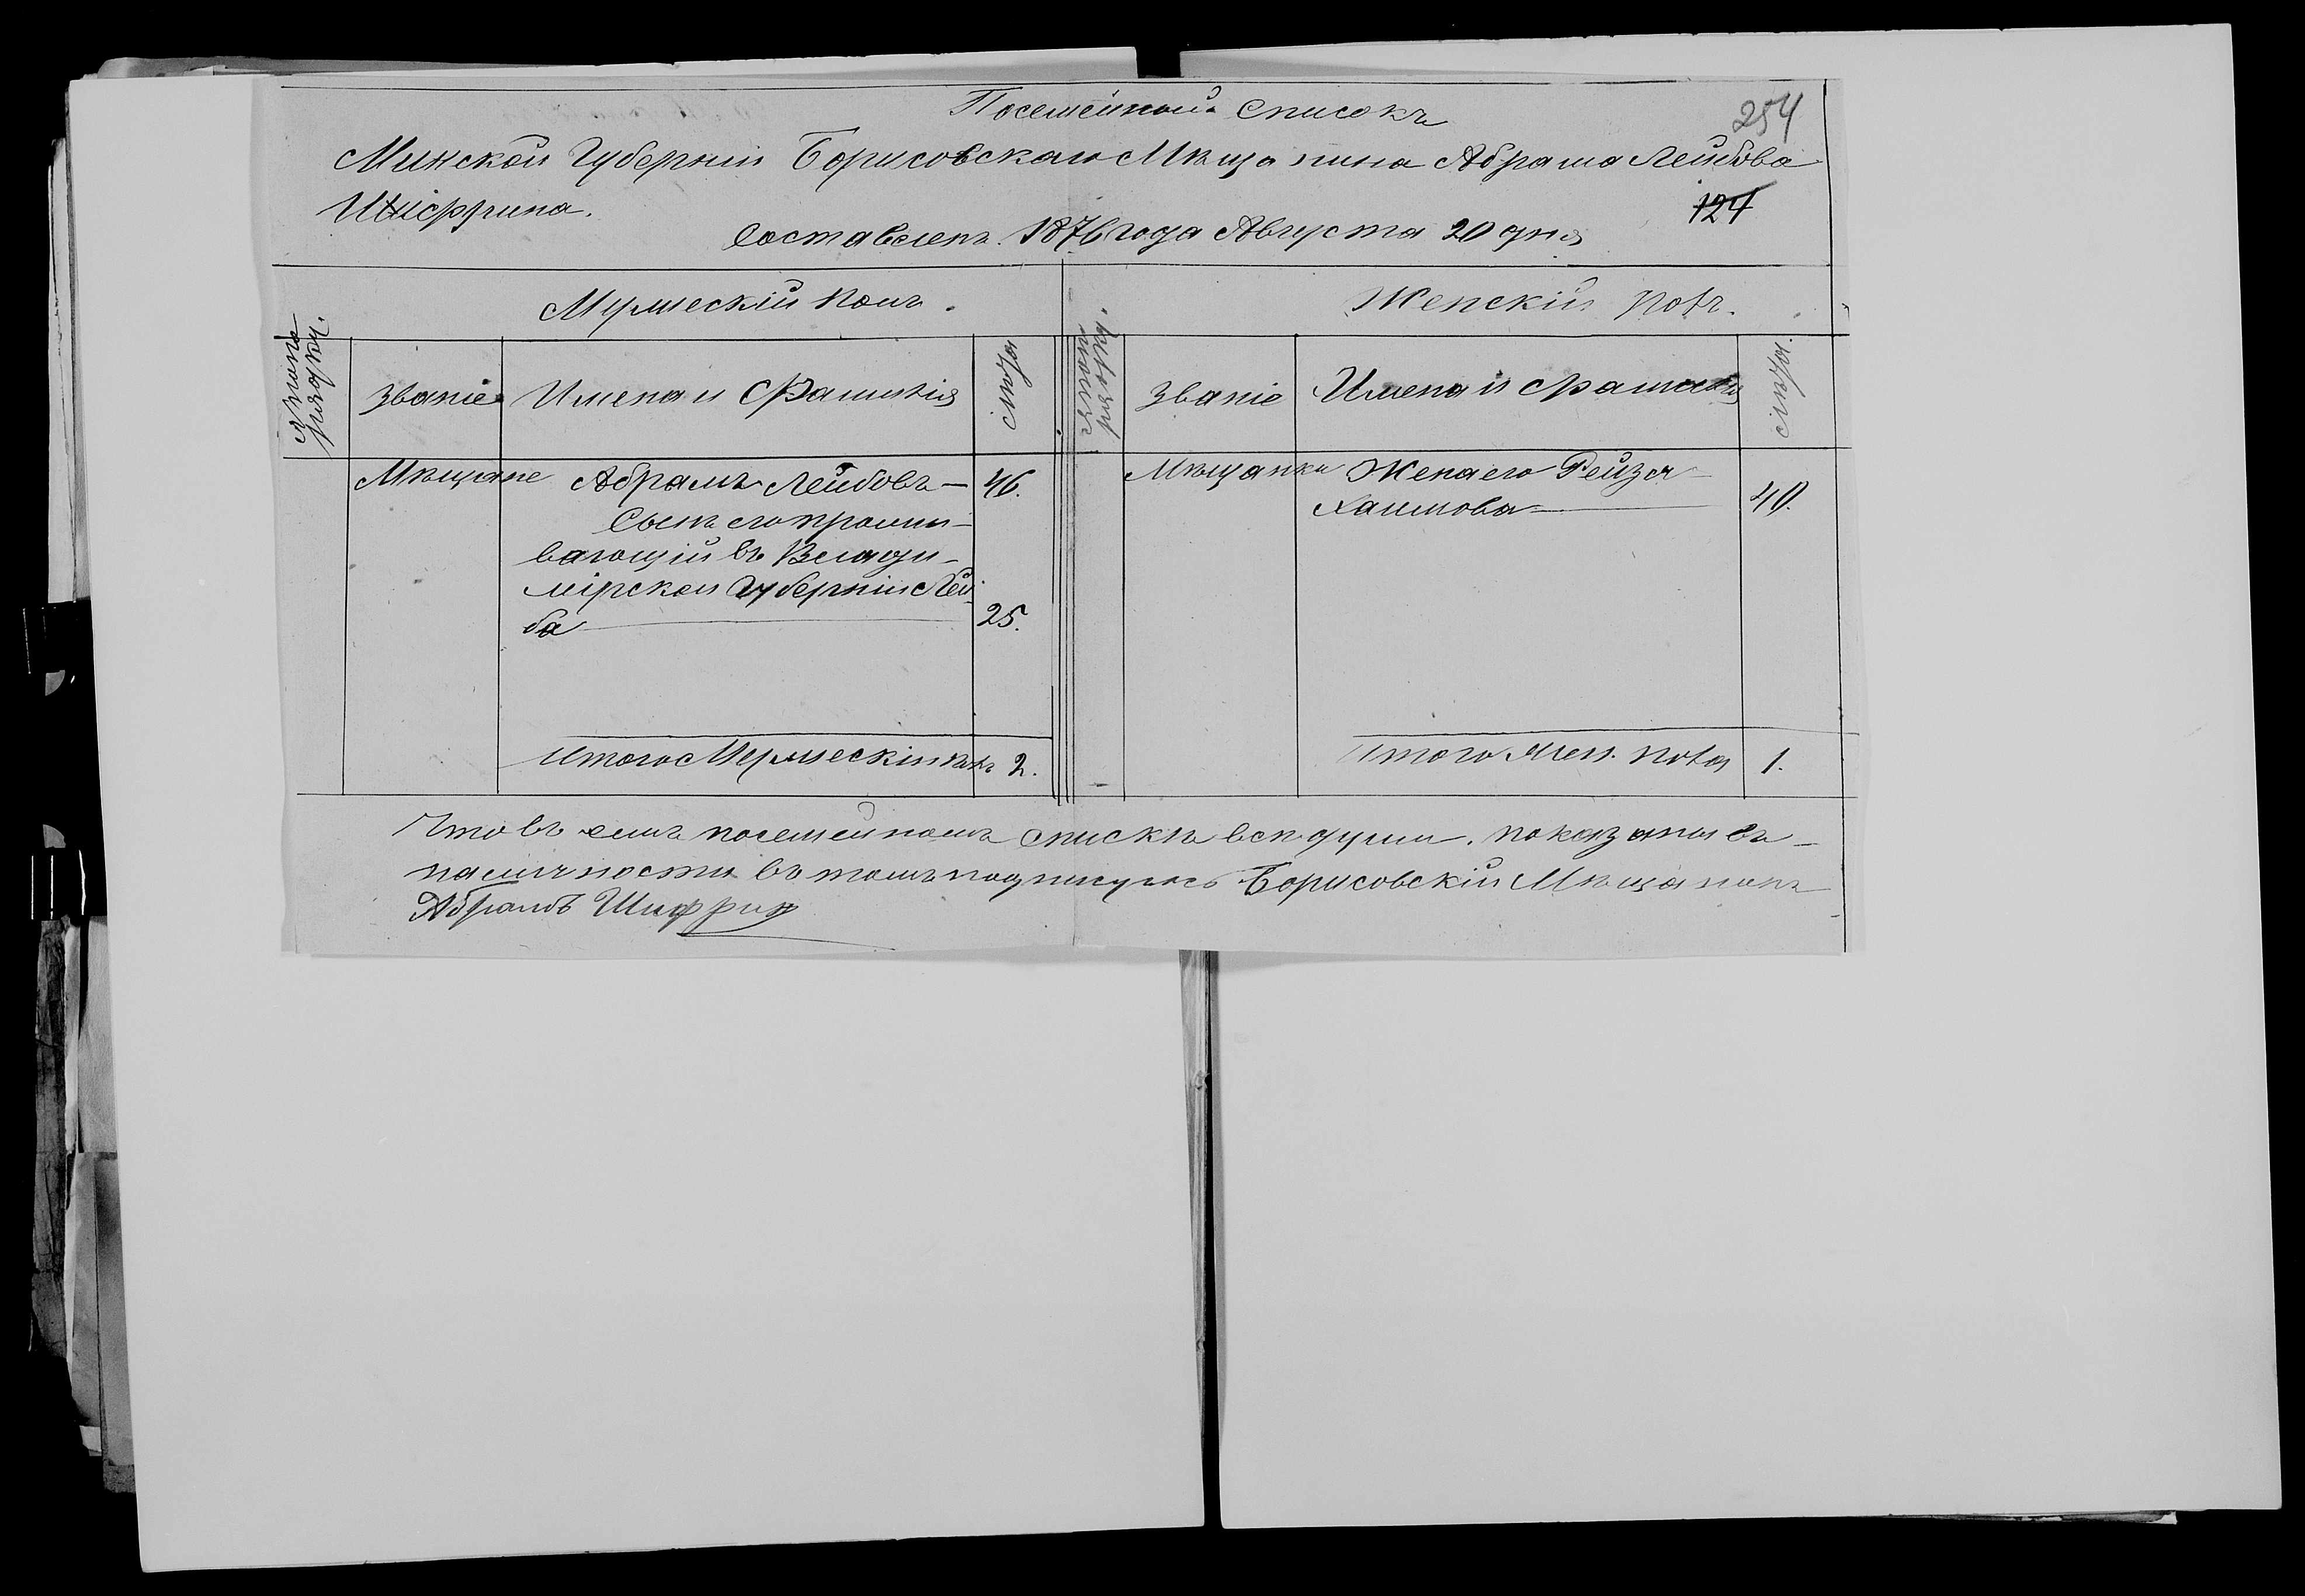 Посемейной Списокъ
254
Минской Губерніи Борисовскаго Мѣщанина Абрама Лейбова
Шифрина.
124
Составленъ 1876 года Августа 20 дня
Мужескій полъ.
Женскій полъ.
Званіе
Имена и Фамилія
лѣта
Званіе
Имена и Фамилія
лѣта.
Мѣщане
Абрамъ Лейбовъ —
46.
Мѣщанки
Жена его Рейза
Хаимова
40.
Сынъ его прожи-
вающій въ Влади-
мірской Губерніи Лей-
ба
25.
Итого Мужескій полъ
2.
Итого Жен. пола
1.
Что въ семъ посемейномъ спискѣ всѣ души показаны въ
наличности въ томъ подпишусь Борисовскій Мѣщанинъ
Абрамъ Шифрин